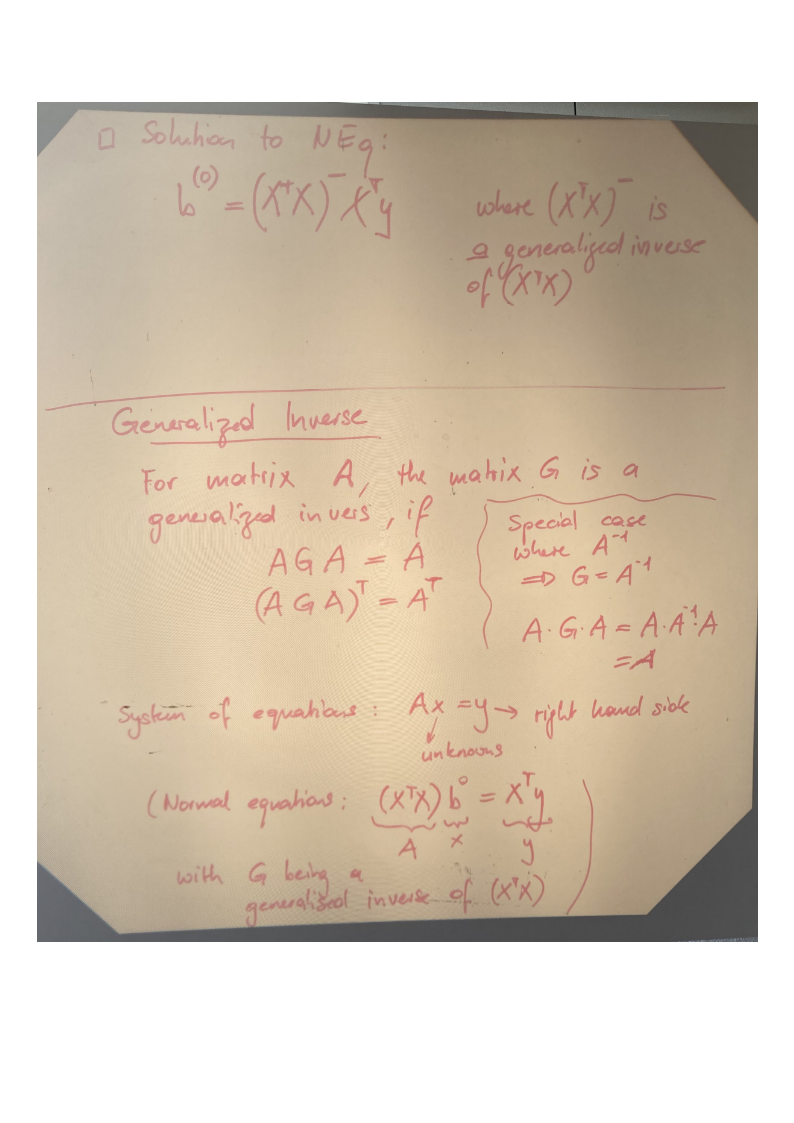 □ Solution to NEq:
b^(0) = (X^T X)^- X^T y
where (X^T X)^- is
a generalized inverse
of (X^T X)
Generalized Inverse
For matrix A, the matrix G is a
generalized invers, if
A G A = A
(A G A)^T = A^T
Special case
where A^-1
⇒ G = A^-1
A · G · A = A · A^-1 · A
= A
System of equations: Ax = y → right hand side
unknowns
(Normal equations: (X^T X) b^o = X^T y
A x y
with G being a
generalized inverse of (X^T X) )